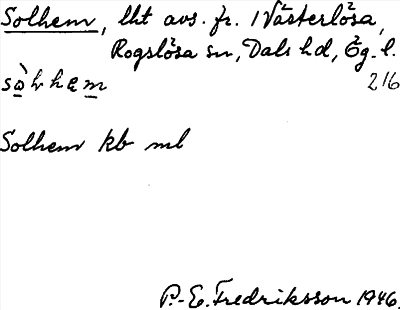 Solhem, lht avs. fr. 1 Västerlösa,
Rogslösa sn, Dals hd, Ög. l.
216
Solhem kb ml
P.-E. Fredriksson 1946.